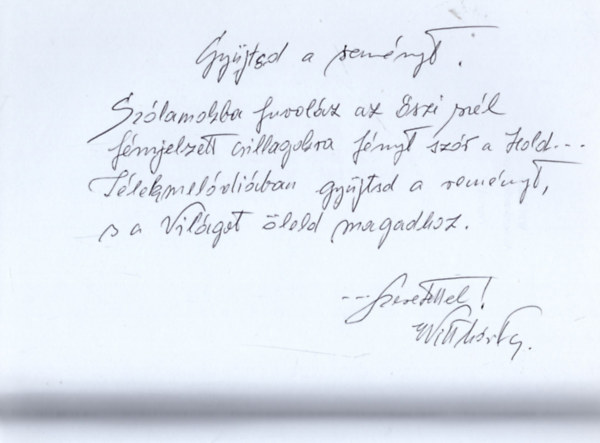 Gyűjtsd a reményt!
Szólamokba fuvoláz az őszi szél
fémjelzett csillagokra fényt szór a Hold...
Lélekmelódiában gyűjtsd a reményt,
s a Világot öleld magadhoz.
---Szeretettel!